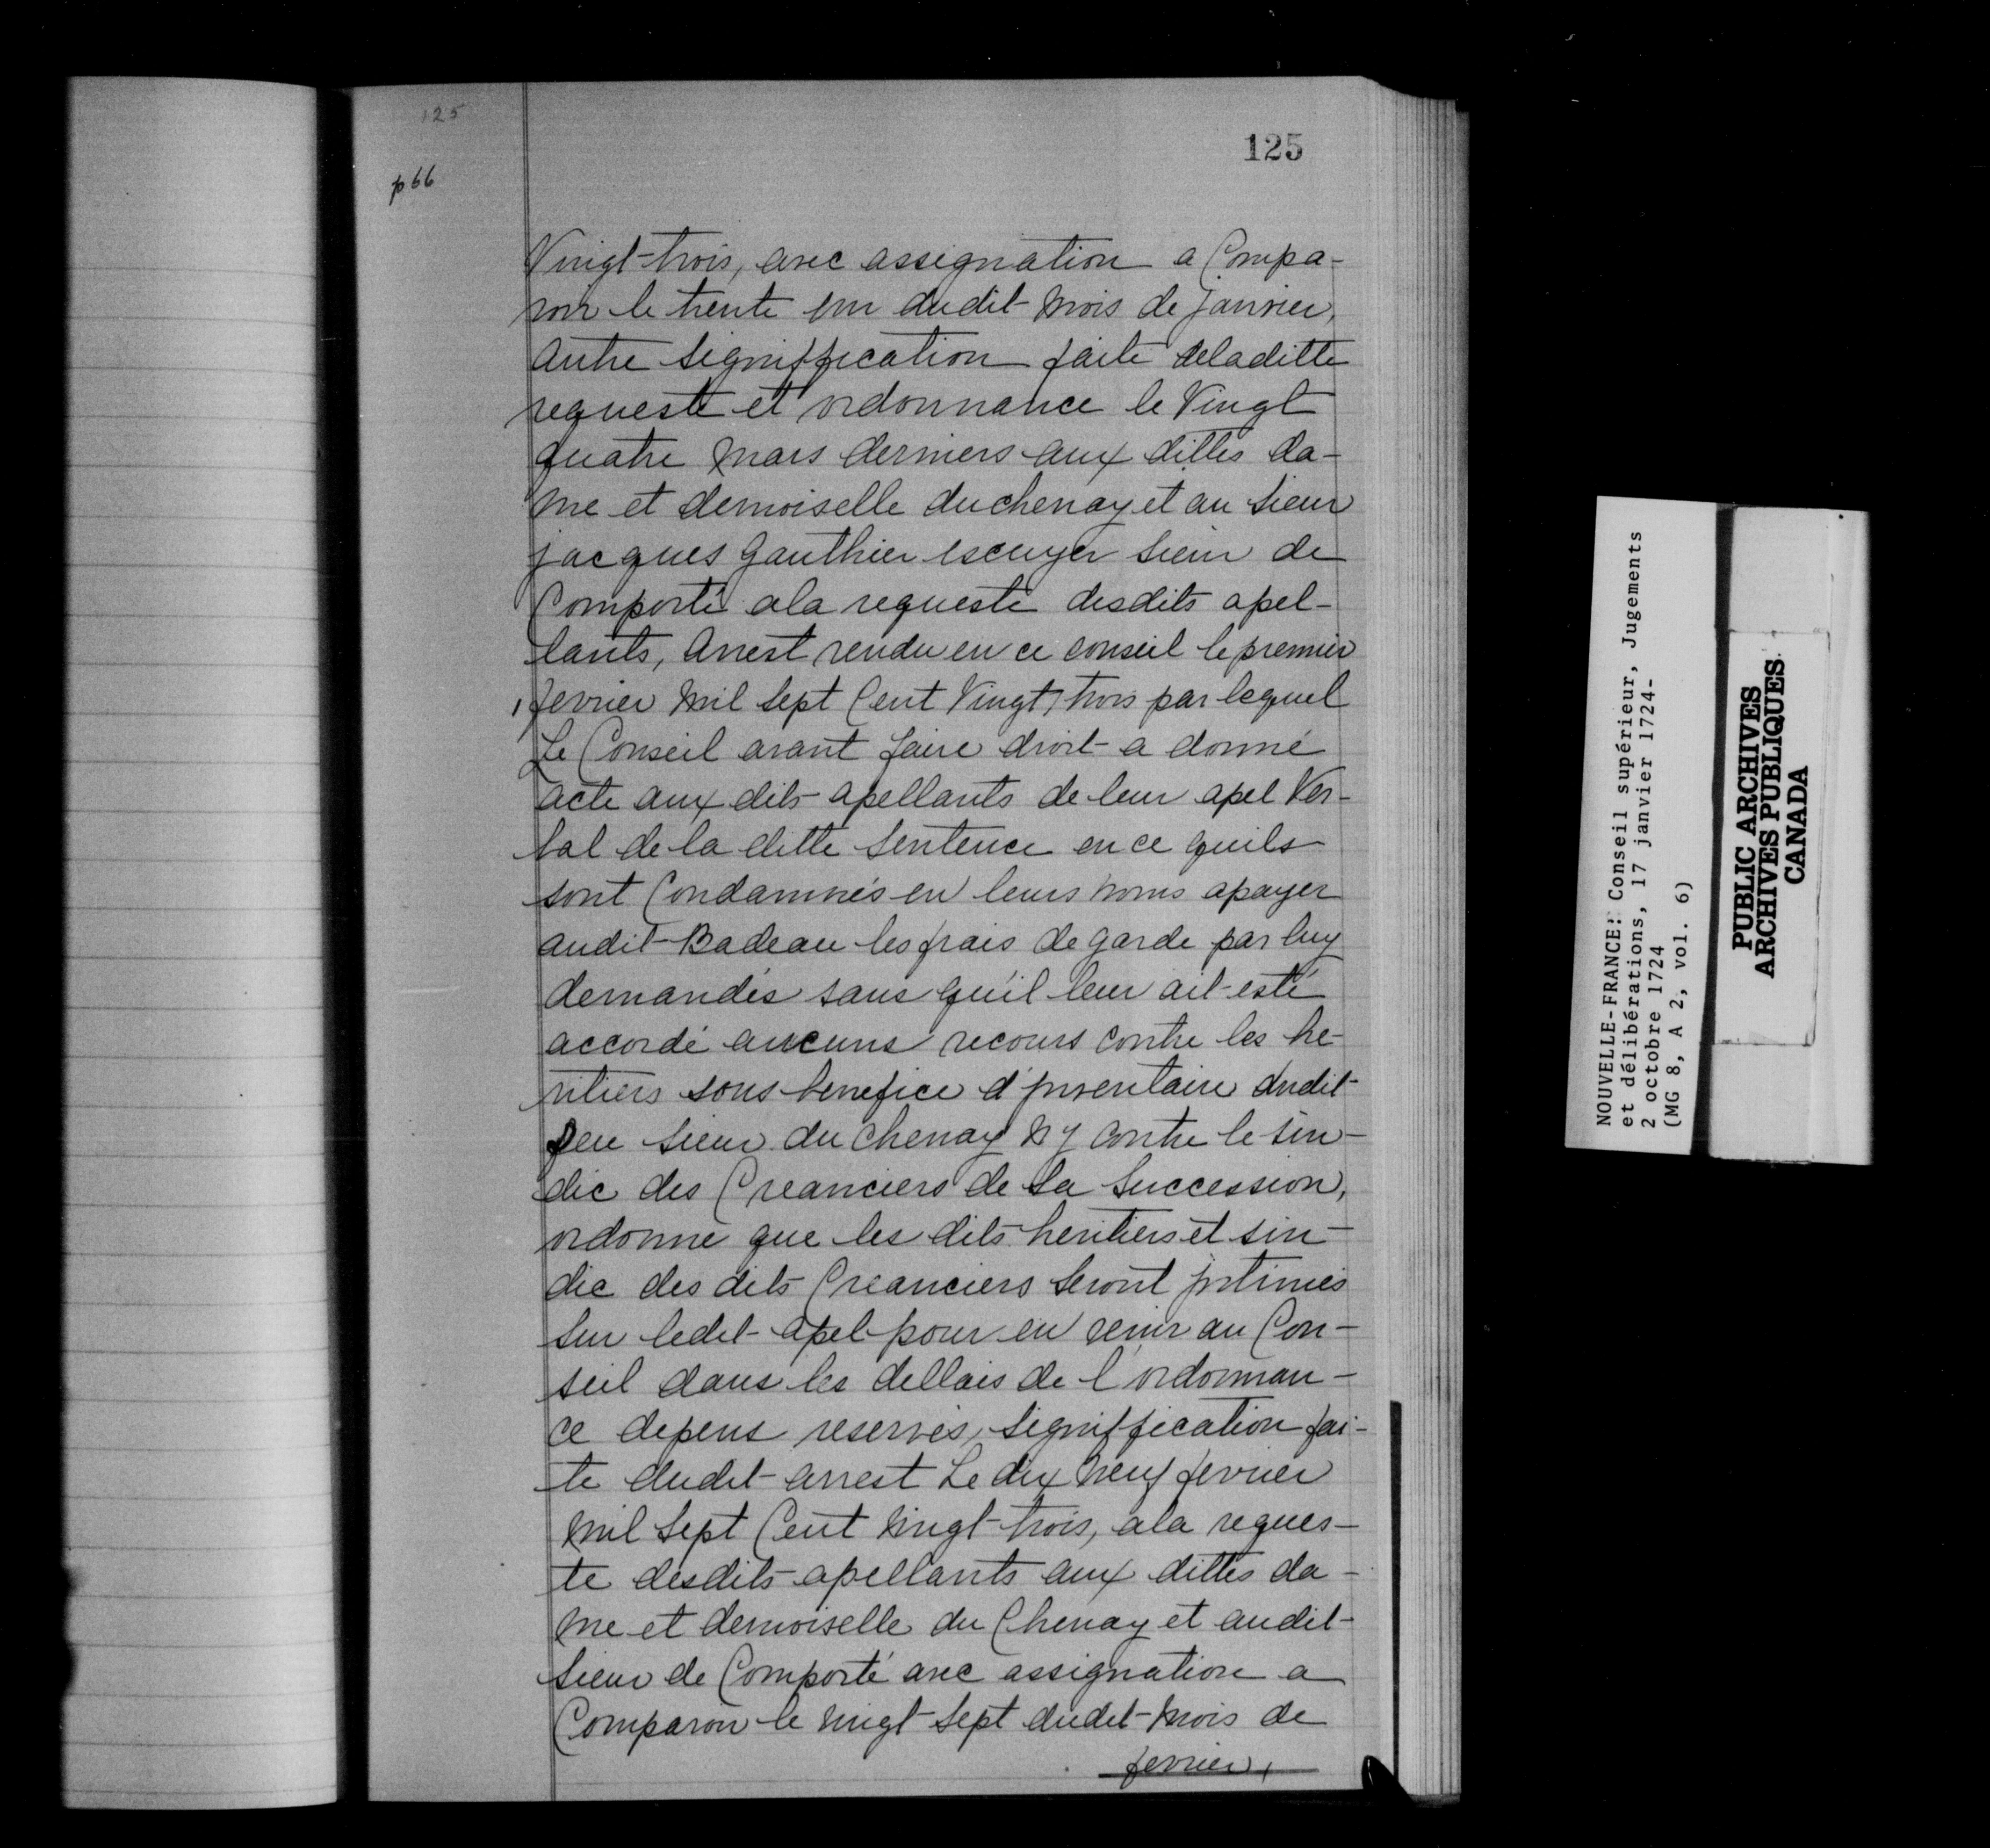 125
125
p 66
Vingt-trois, avec assignation a Compa-
roir le trente un dudit mois de janvier,
autre signiffication faite deladitte
requeste et ordonnance le Vingt
quatre mars derniers aux dittes da-
me et demoiselle duchenay et au sieur
jacques gauthier escuyer sieur de
Comporté ala requeste desdits apel-
lants, Arrest rendu en ce conseil le premier
fevrier mil sept Cent Vingt, trois par lequel
Le Conseil avant faire droit a donné
acte aux dits apellants de leur apel Ver-
bal de la ditte sentence en ce quils
sont Condamnés en leurs noms apayer
audit Badeau les frais de garde par luy
demandés sans qu'il leur ait esté
accordé aucuns recours contre les he-
ritiers sous benefice d'jnventaire dudit
feu sieur du chenay ny contre le sin-
dic des Creanciers de sa succession,
ordonne que les dits heritiers et sin-
dic des dits Creanciers seront jntimés
sur ledit apel pour en venir au Con-
seil dans les dellais de l'ordonnan-
ce depens reservés, signiffication fai-
te dudit arrest Le dix neuf fevrier
mil sept Cent vingt-trois, ala reques-
te desdits apellants aux dittes da-
me et demoiselle du Chenay et audit
sieur de Comporté avec assignation a
Comparoir le vingt-sept dudit mois de
fevrier,
NOUVELLE-FRANCE: Conseil supérieur, Jugements
et délibérations, 17 janvier 1724-
2 octobre 1724
(MG 8, A 2, vol. 6)
PUBLIC ARCHIVES
ARCHIVES PUBLIQUES
CANADA